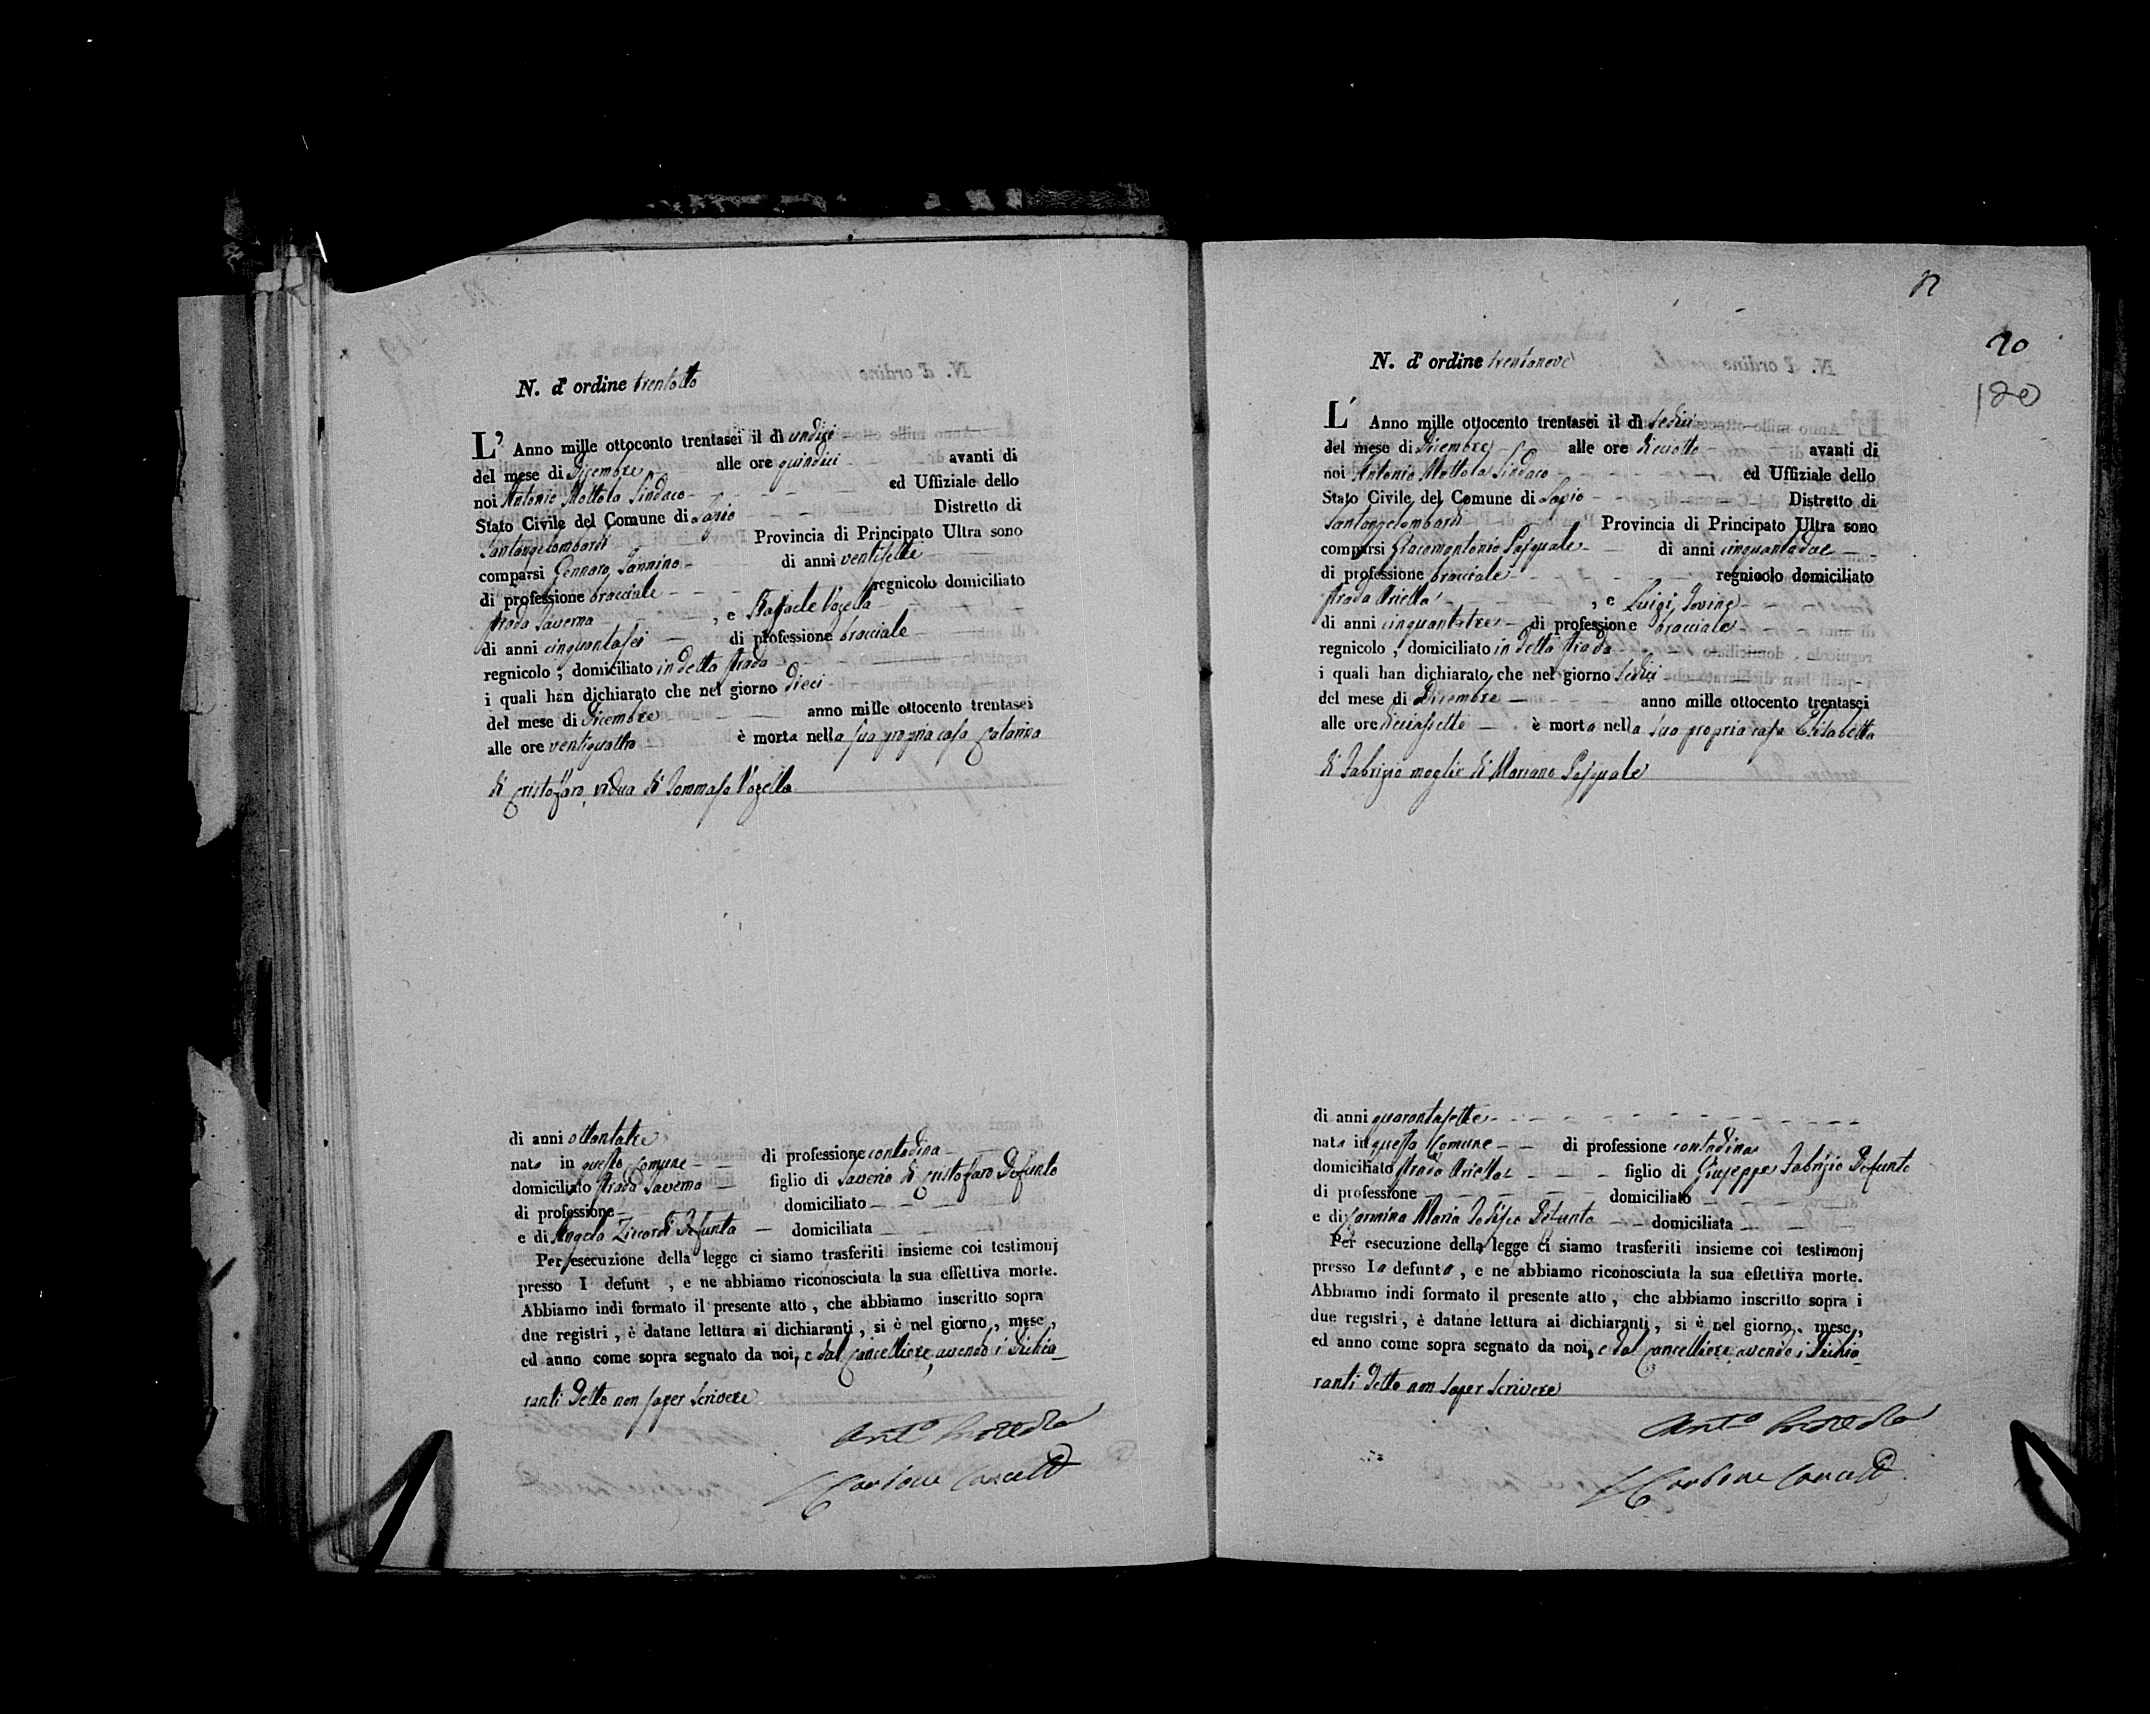 N. d' ordine trentotto
L' Anno mille ottocento trentasei il dì undici
del mese di Dicembre alle ore quindici avanti di
noi Antonio Mottola Sindaco ed Uffiziale dello
Stato Civile del Comune di Lapio Distretto di
Santangelombardi Provincia di Principato Ultra sono
comparsi Gennaro Iannino di anni ventisette
di professione bracciale regnicolo domiciliato
strada Taverna , e Raffaele Vozella
di anni cinquantasei di professione bracciale
regnicolo ; domiciliato in detta strada
i quali han dichiarato che nel giorno dieci
del mese di Dicembre anno mille ottocento trentasei
alle ore ventiquattro è morta nella sua propria casa Catarina
di Cristofaro, vidua di Tommaso Vozella
di anni ottantatre
nata in questo Comune di professione contadina
domiciliato strada Taverna figlio di Saverio di Cristofaro Defunto
di professione domiciliato
e di Angela Ziccardi Defunta domiciliata
Per esecuzione della legge ci siamo trasferiti insieme coi testimonj
presso l defunt , e ne abbiamo riconosciuta la sua effettiva morte.
Abbiamo indi formato il presente atto , che abbiamo inscritto sopra
due registri , è datane lettura ai dichiaranti , si è nel giorno , mese ,
ed anno come sopra segnato da noi, e dal Cancelliere, avendo i Dichia-
ranti detto non saper scrivere
Ant.o Mottola
Carbone Cancell
N. d' ordine trentanove
L' Anno mille ottocento trentasei il dì sedici
del mese di Dicembre alle ore diciotto avanti di
noi Antonio Mottola Sindaco ed Uffiziale dello
Stato Civile del Comune di Lapio Distretto di
Santangelombardi Provincia di Principato Ultra sono
comparsi Giacomantonio Pasquale di anni cinquantadue
di professione bracciale regnicolo domiciliato
strada Ariella , e Luigi Iovine
di anni cinquantatre di professione bracciale
regnicolo ; domiciliato in detta strada
i quali han dichiarato che nel giorno sedici
del mese di Dicembre anno mille ottocento trentasei
alle ore diciassette è morta nella sua propria casa Elisabetta
di Fabrizio moglie di Mariano Pasquale
di anni quarantasette
nata in questo Comune di professione contadina
domiciliato strada Ariella figlio di Giuseppe Fabrizio Defunto
di professione domiciliato
e di Carmina Maria Defunta domiciliata
Per esecuzione della legge ci siamo trasferiti insieme coi testimonj
presso la defunta , e ne abbiamo riconosciuta la sua effettiva morte.
Abbiamo indi formato il presente atto , che abbiamo inscritto sopra i
due registri , è datane lettura ai dichiaranti , si è nel giorno, mese ,
ed anno come sopra segnato da noi, e dal Cancelliere, avendo i Dichia-
ranti detto non saper scrivere
Ant.o Mottola
Carbone Cancell